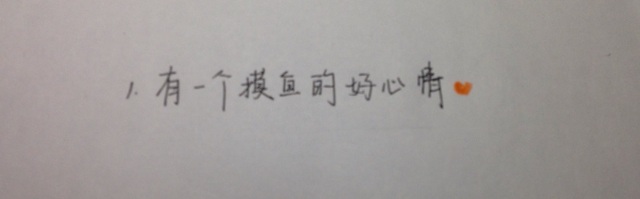 1. 有一个摸鱼的好心情